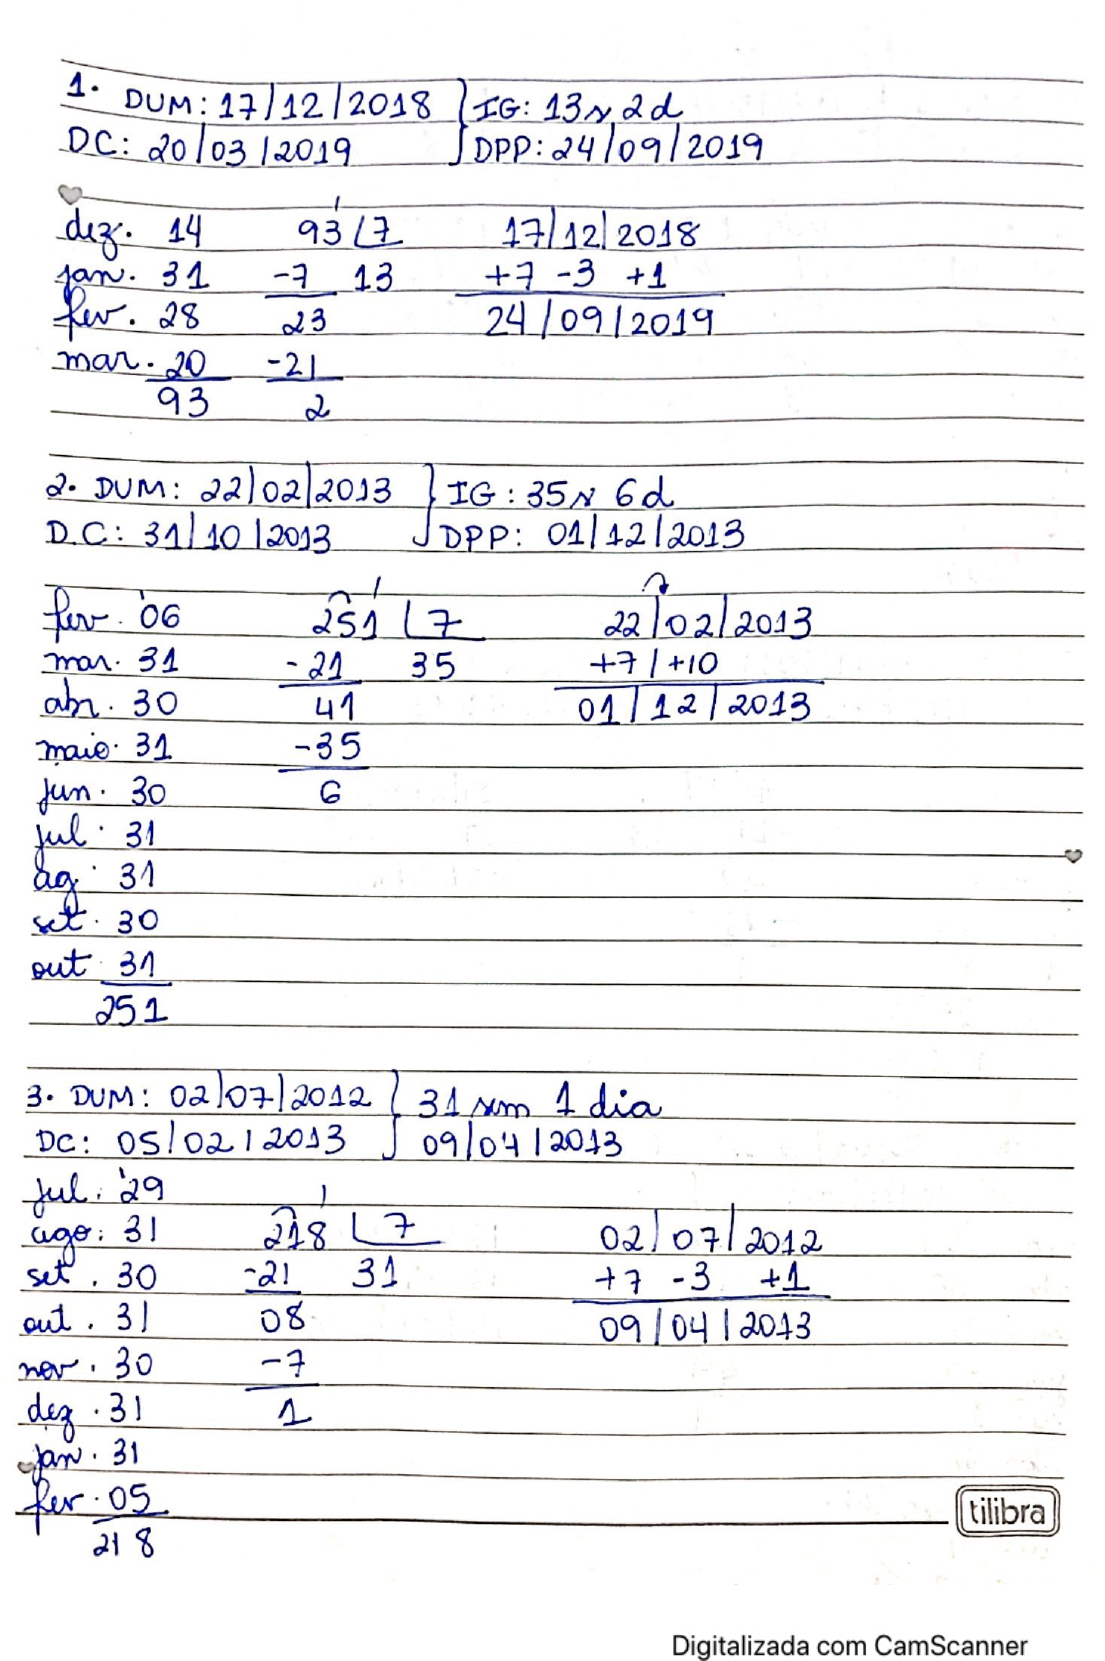 1. DUM: 17/12/2018 } IG: 13s 2d
DC: 20/03/2019 DPP: 24/09/2019
dez. 14 93 7 17/12/2018
jan. 31 -7 13 +7 -3 +1
fev. 28 23 24/09/2019
mar. 20 -21
93 2
2. DUM: 22/02/2013 } IG: 35s 6d
D.C: 31/10/2013 DPP: 01/12/2013
fev. 06 251 7 22/02/2013
mar. 31 -21 35 +7/+10
abr. 30 41 01/12/2013
maio. 31 -35
jun. 30 6
jul. 31
ag. 31
set. 30
out 31
251
3. DUM: 02/07/2012 } 31 sem 1 dia
DC: 05/02/2013 09/04/2013
jul. 29
ago. 31 218 7 02/07/2012
set. 30 -21 31 +7 -3 +1
out. 31 08 09/04/2013
nov. 30 -7
dez. 31 1
jan. 31
fev. 05
218
tilibra
Digitalizada com CamScanner